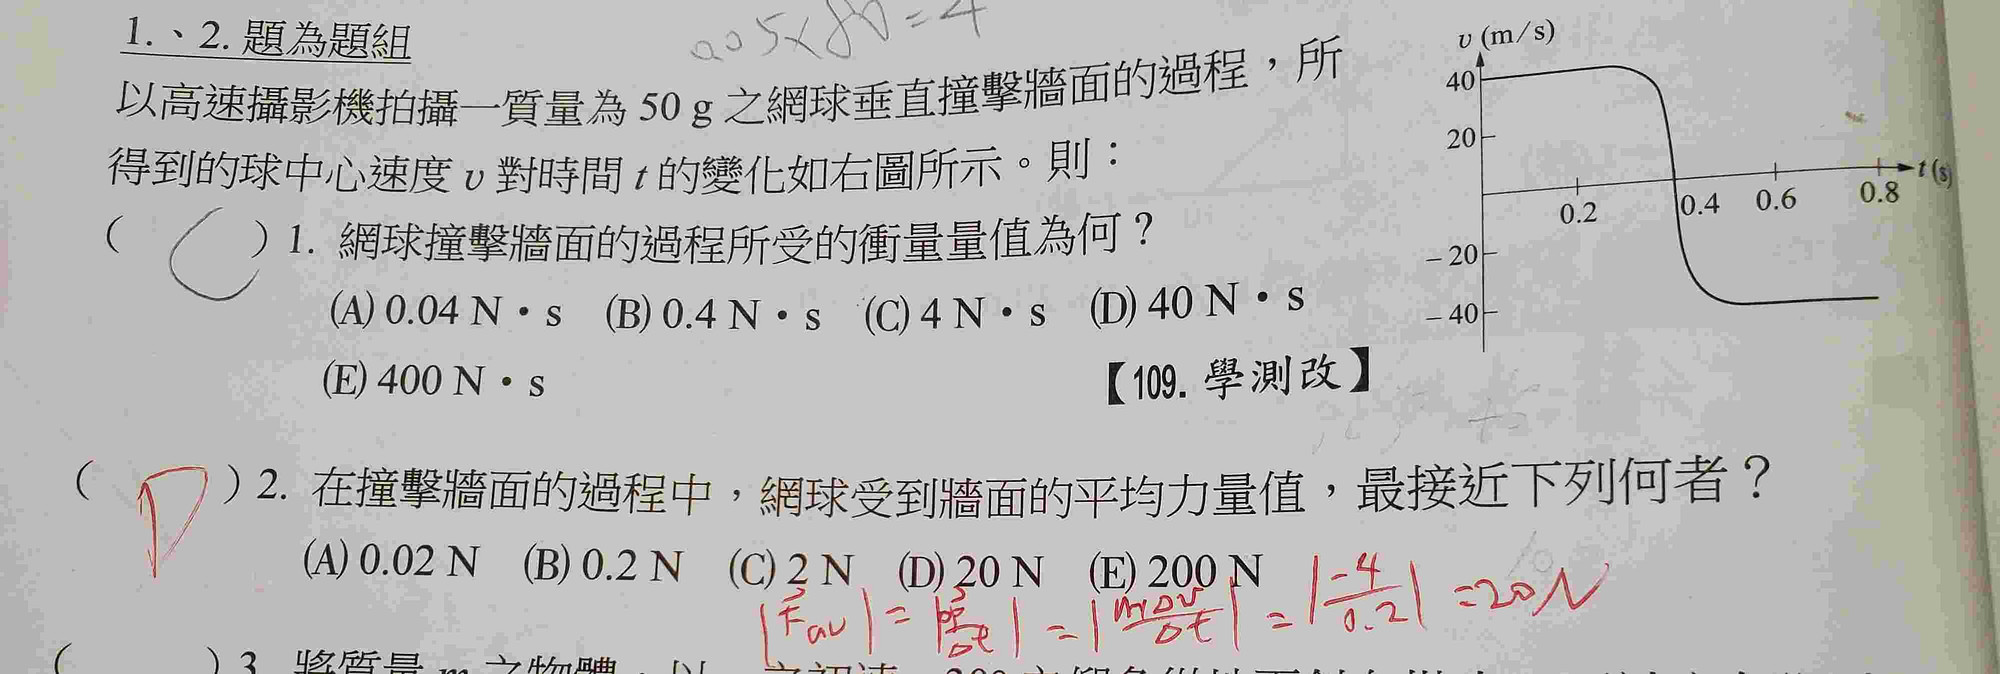 0.05×80=4
1.、2. 題為題組
以高速攝影機拍攝一質量為 50 g 之網球垂直撞擊牆面的過程，所
得到的球中心速度 v 對時間 t 的變化如右圖所示。則：
v (m/s)
40
20
-20
-40
0.2
0.4
0.6
0.8
t (s)
( C ) 1. 網球撞擊牆面的過程所受的衝量量值為何？
(A) 0.04 N・s (B) 0.4 N・s (C) 4 N・s (D) 40 N・s
(E) 400 N・s 【109. 學測改】
( D ) 2. 在撞擊牆面的過程中，網球受到牆面的平均力量值，最接近下列何者？
(A) 0.02 N (B) 0.2 N (C) 2 N (D) 20 N (E) 200 N
|F av| = |Δp/Δt| = |mΔv/Δt| = |-4/0.2| = 20 N
( ) 3. 將質量 m 之物體，以